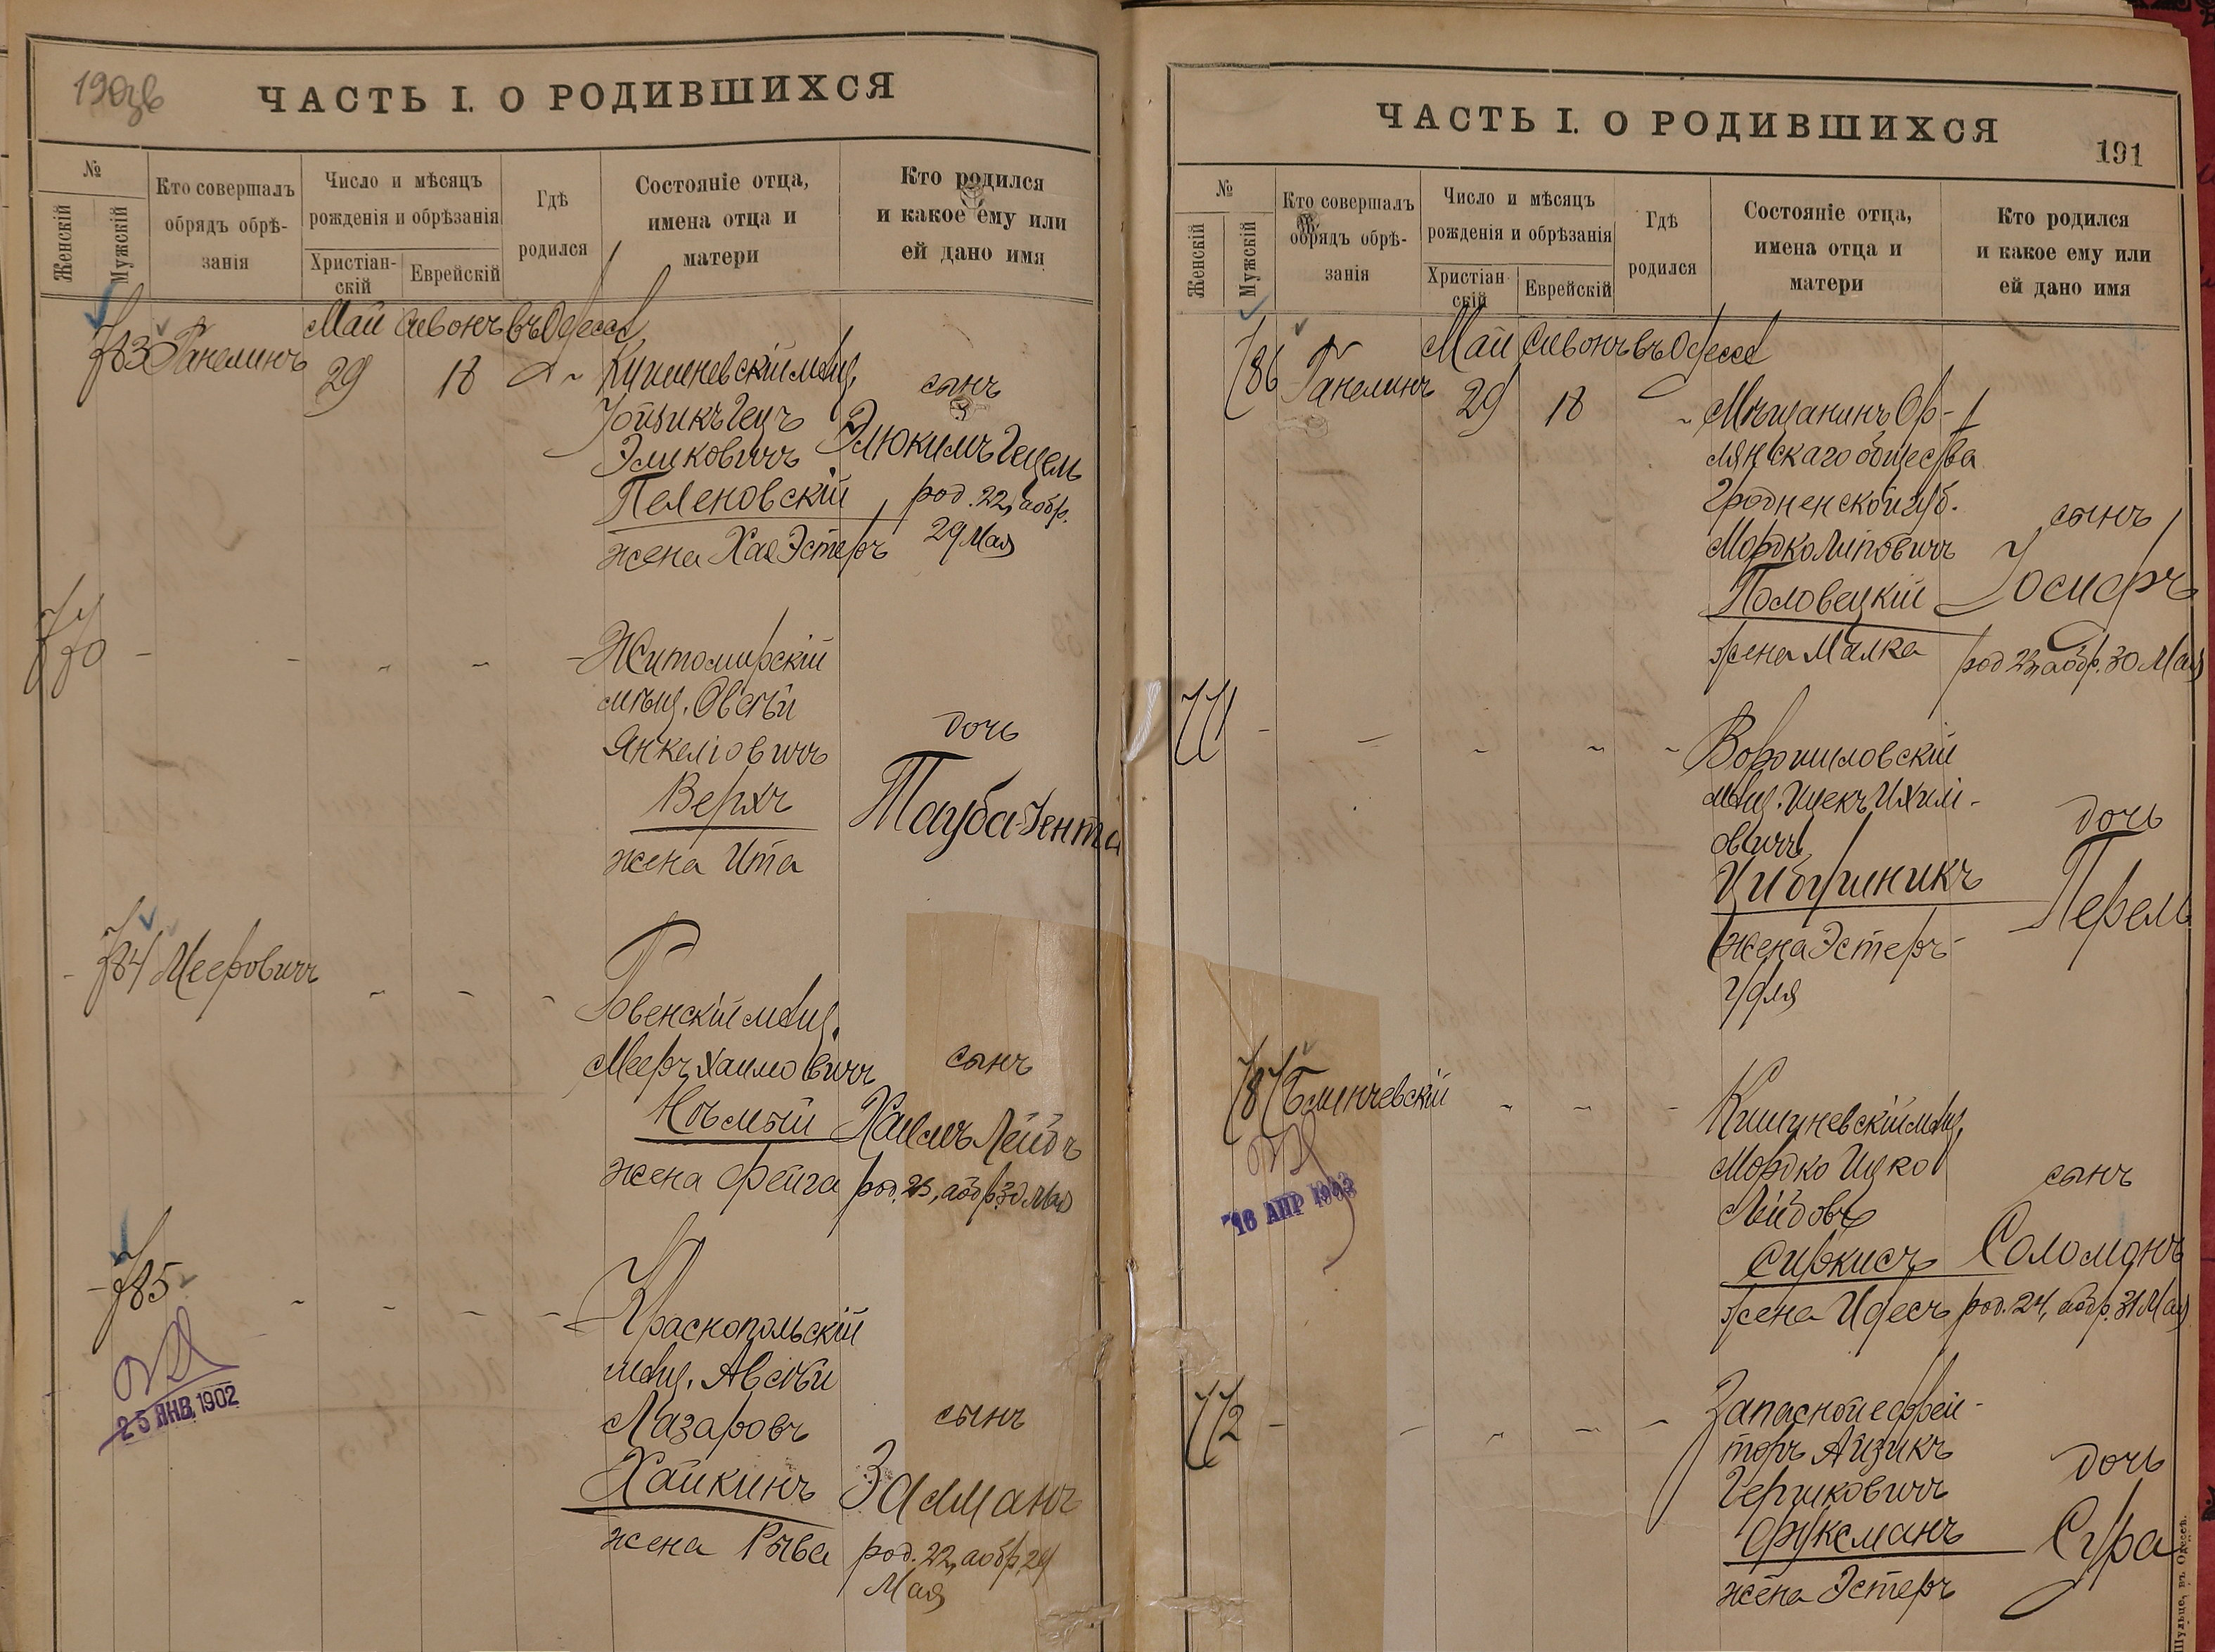 190зв
ЧАСТЬ I. О РОДИВШИХСЯ
№
Женскій
Мужскій
Кто совершалъ
обрядъ обрѣ-
занія
Число и мѣсяцъ
рожденія и обрѣзанія
Христіан-
скій
Еврейскій
Гдѣ
родился
Состояніе отца,
имена отца и
матери
Кто родился
и какое ему или
ей дано имя
Май Сивонъ въ Одессѣ
783 Ганелинъ 29 18 Кишиневскій мѣщ.
сынъ
Іойзикъ Гецъ
Эликовичъ Элюкимъ Гецель
Пеленовскій род. 22, а обр.
жена Хая Эстеръ 29 Мая
770 - Житомирскій
мѣщ. Овсѣй
Янкеліовичъ дочь
Верхъ Тауба-Іента
жена Ита
784 Мееровичъ
Ровенскій мѣщ.
Мееръ Хаимовичъ сынъ
Нѣмый Хаимъ Лейбъ
жена Фейга род. 23, а обр. 30 Мая
785
Краснопольскій
мѣщ. Авсѣй
25 ЯНВ. 1902
Лазаровъ сынъ
Хайкинъ Залманъ
жена Рыва род. 22, а обр 29
Мая
ЧАСТЬ I. О РОДИВШИХСЯ
191
№
Женскій
Мужскій
Кто совершалъ
обрядъ обрѣ-
занія
Число и мѣсяцъ
рожденія и обрѣзанія
Христіан-
скій
Еврейскій
Гдѣ
родился
Состояніе отца,
имена отца и
матери
Кто родился
и какое ему или
ей дано имя
Май Сивонъ въ Одессѣ
786 Ганелинъ 29 18 Мѣщанинъ Ор-
лянскаго общества
Гродненской губ. сынъ
Мордко Липовичъ
Половецкій Іосифъ
жена Малка род 23, а обр. 30 Мая
771 - Ворошиловскій
мѣщ. Ицекъ Ихил-
овичъ дочь
Цибушникъ Перель
жена Эстеръ-
Удля
787 Блинчевскій Кишиневскій мѣщ.
Мордко Ицко
сынъ
16 АПР 1903
Лейбовъ
Сиркисъ Соломонъ
жена Идесъ род. 24, а обр. 31 Мая
772 - Запасной ефрей-
торъ Айзикъ дочь
Гершковичъ
Фуксманъ Сура
жена Эстеръ
Шульце, въ Одессѣ.